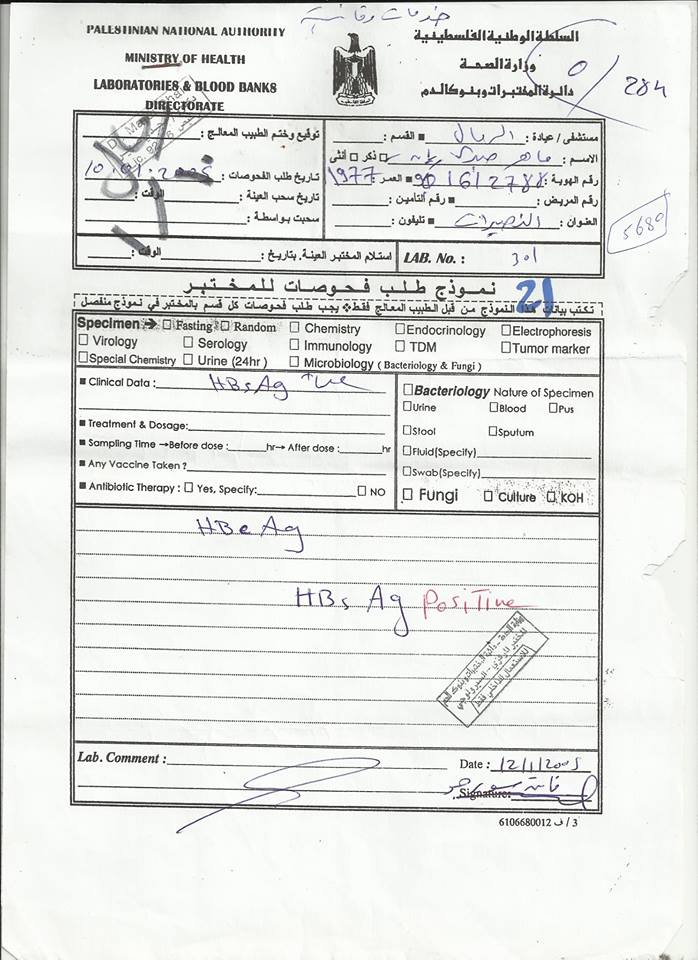 خدمات وقائية
PALESTINIAN NATIONAL AUTHORITY
MINISTRY OF HEALTH
LABORATORIES & BLOOD BANKS
DIRECTORATE
السلطة الوطنية الفلسطينية
وزارة الصحة
دائرة المختبرات وبنوك الدم
284
مستشفى / عيادة : الرمال القسم :
الاسم : ماهر صدقي ذكر أنثى
رقم الهوية : العمر : 1977
رقم المريض : رقم التأمين :
العنوان : النصيرات تليفون :
5680
توقيع وختم الطبيب المعالج :
تاريخ طلب الفحوصات : 10.01.2005
تاريخ سحب العينة : الوقت :
سحبت بواسطة :
LAB. No. : 301
استلام المختبر العينة. بتاريخ : الوقت :
نموذج طلب فحوصات للمختبر
21
تكتب بيانات هذا النموذج من قبل الطبيب المعالج فقط يجب طلب فحوصات كل قسم بالمختبر في نموذج منفصل
Specimen Fasting Random Chemistry Endocrinology Electrophoresis
Virology Serology Immunology TDM Tumor marker
Special Chemistry Urine (24hr) Microbiology ( Bacteriology & Fungi )
Clinical Data : HBsAg +ve
Treatment & Dosage:
Sampling Time →Before dose : hr→ After dose : hr
Any Vaccine Taken ?
Antibiotic Therapy : Yes, Specify: NO
Bacteriology Nature of Specimen
Urine Blood Pus
Stool Sputum
Fluid(Specify)
Swab(Specify)
Fungi Culture KOH
HBeAg
HBs Ag Positive
وزارة الصحة - دائرة المختبرات وبنوك الدم
المختبر المركزي - السيرولوجي
للاستعمال الداخلي فقط
Lab. Comment :
Date : 12/1/2005
Signature:
6106680012 ف / 3